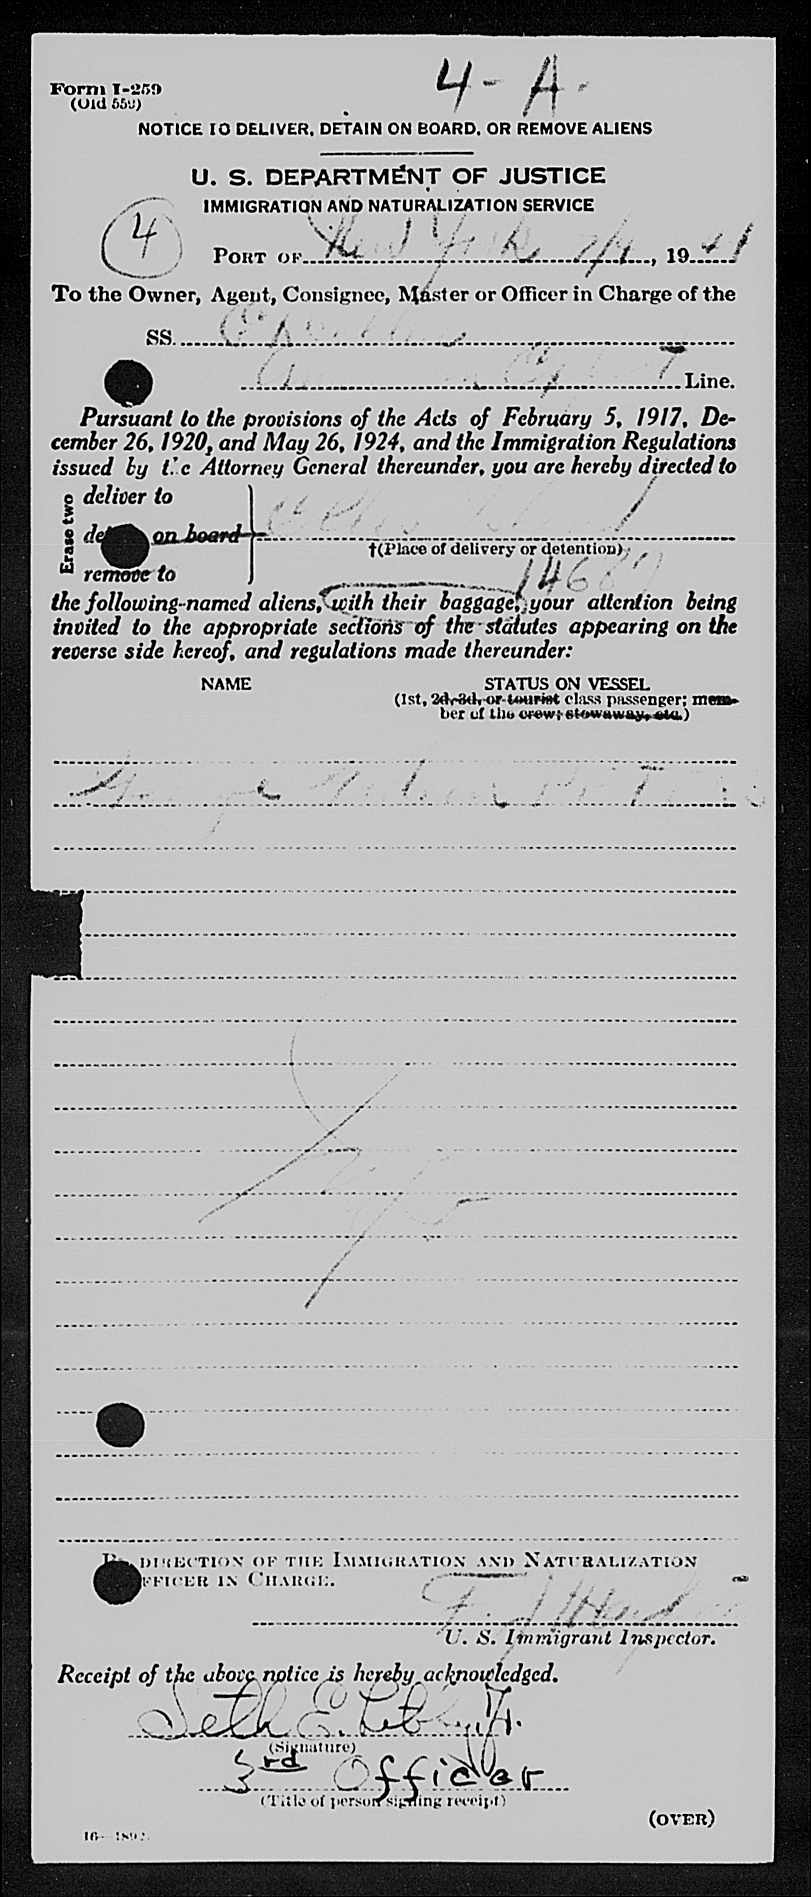 Form I-259
(Old 559)
4 - A.
NOTICE TO DELIVER, DETAIN ON BOARD, OR REMOVE ALIENS
U. S. DEPARTMENT OF JUSTICE
IMMIGRATION AND NATURALIZATION SERVICE
4
PORT OF New York, 1941
To the Owner, Agent, Consignee, Master or Officer in Charge of the
SS.
Line.
Pursuant to the provisions of the Acts of February 5, 1917, De-
cember 26, 1920, and May 26, 1924, and the Immigration Regulations
issued by the Attorney General thereunder, you are hereby directed to
Erase two
deliver to
on board
remove to
†(Place of delivery or detention)
the following-named aliens, with their baggage, your attention being
invited to the appropriate sections of the statutes appearing on the
reverse side hereof, and regulations made thereunder:
NAME STATUS ON VESSEL
(1st, 2d, 3d, or tourist class passenger; mem-
ber of the crew; stowaway, etc.)
George
DIRECTION OF THE IMMIGRATION AND NATURALIZATION
OFFICER IN CHARGE.
U. S. Immigrant Inspector.
Receipt of the above notice is hereby acknowledged.
Seth E. Libby, Jr.
(Signature)
3rd Officer
(Title of person signing receipt)
(OVER)